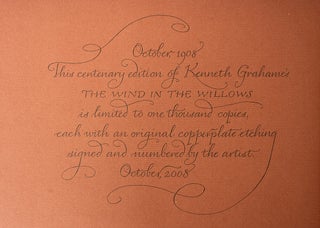 October, 1908
This centenary edition of Kenneth Grahame's
THE WIND IN THE WILLOWS
is limited to one thousand copies,
each with an original copperplate etching
signed and numbered by the artist.
October, 2008